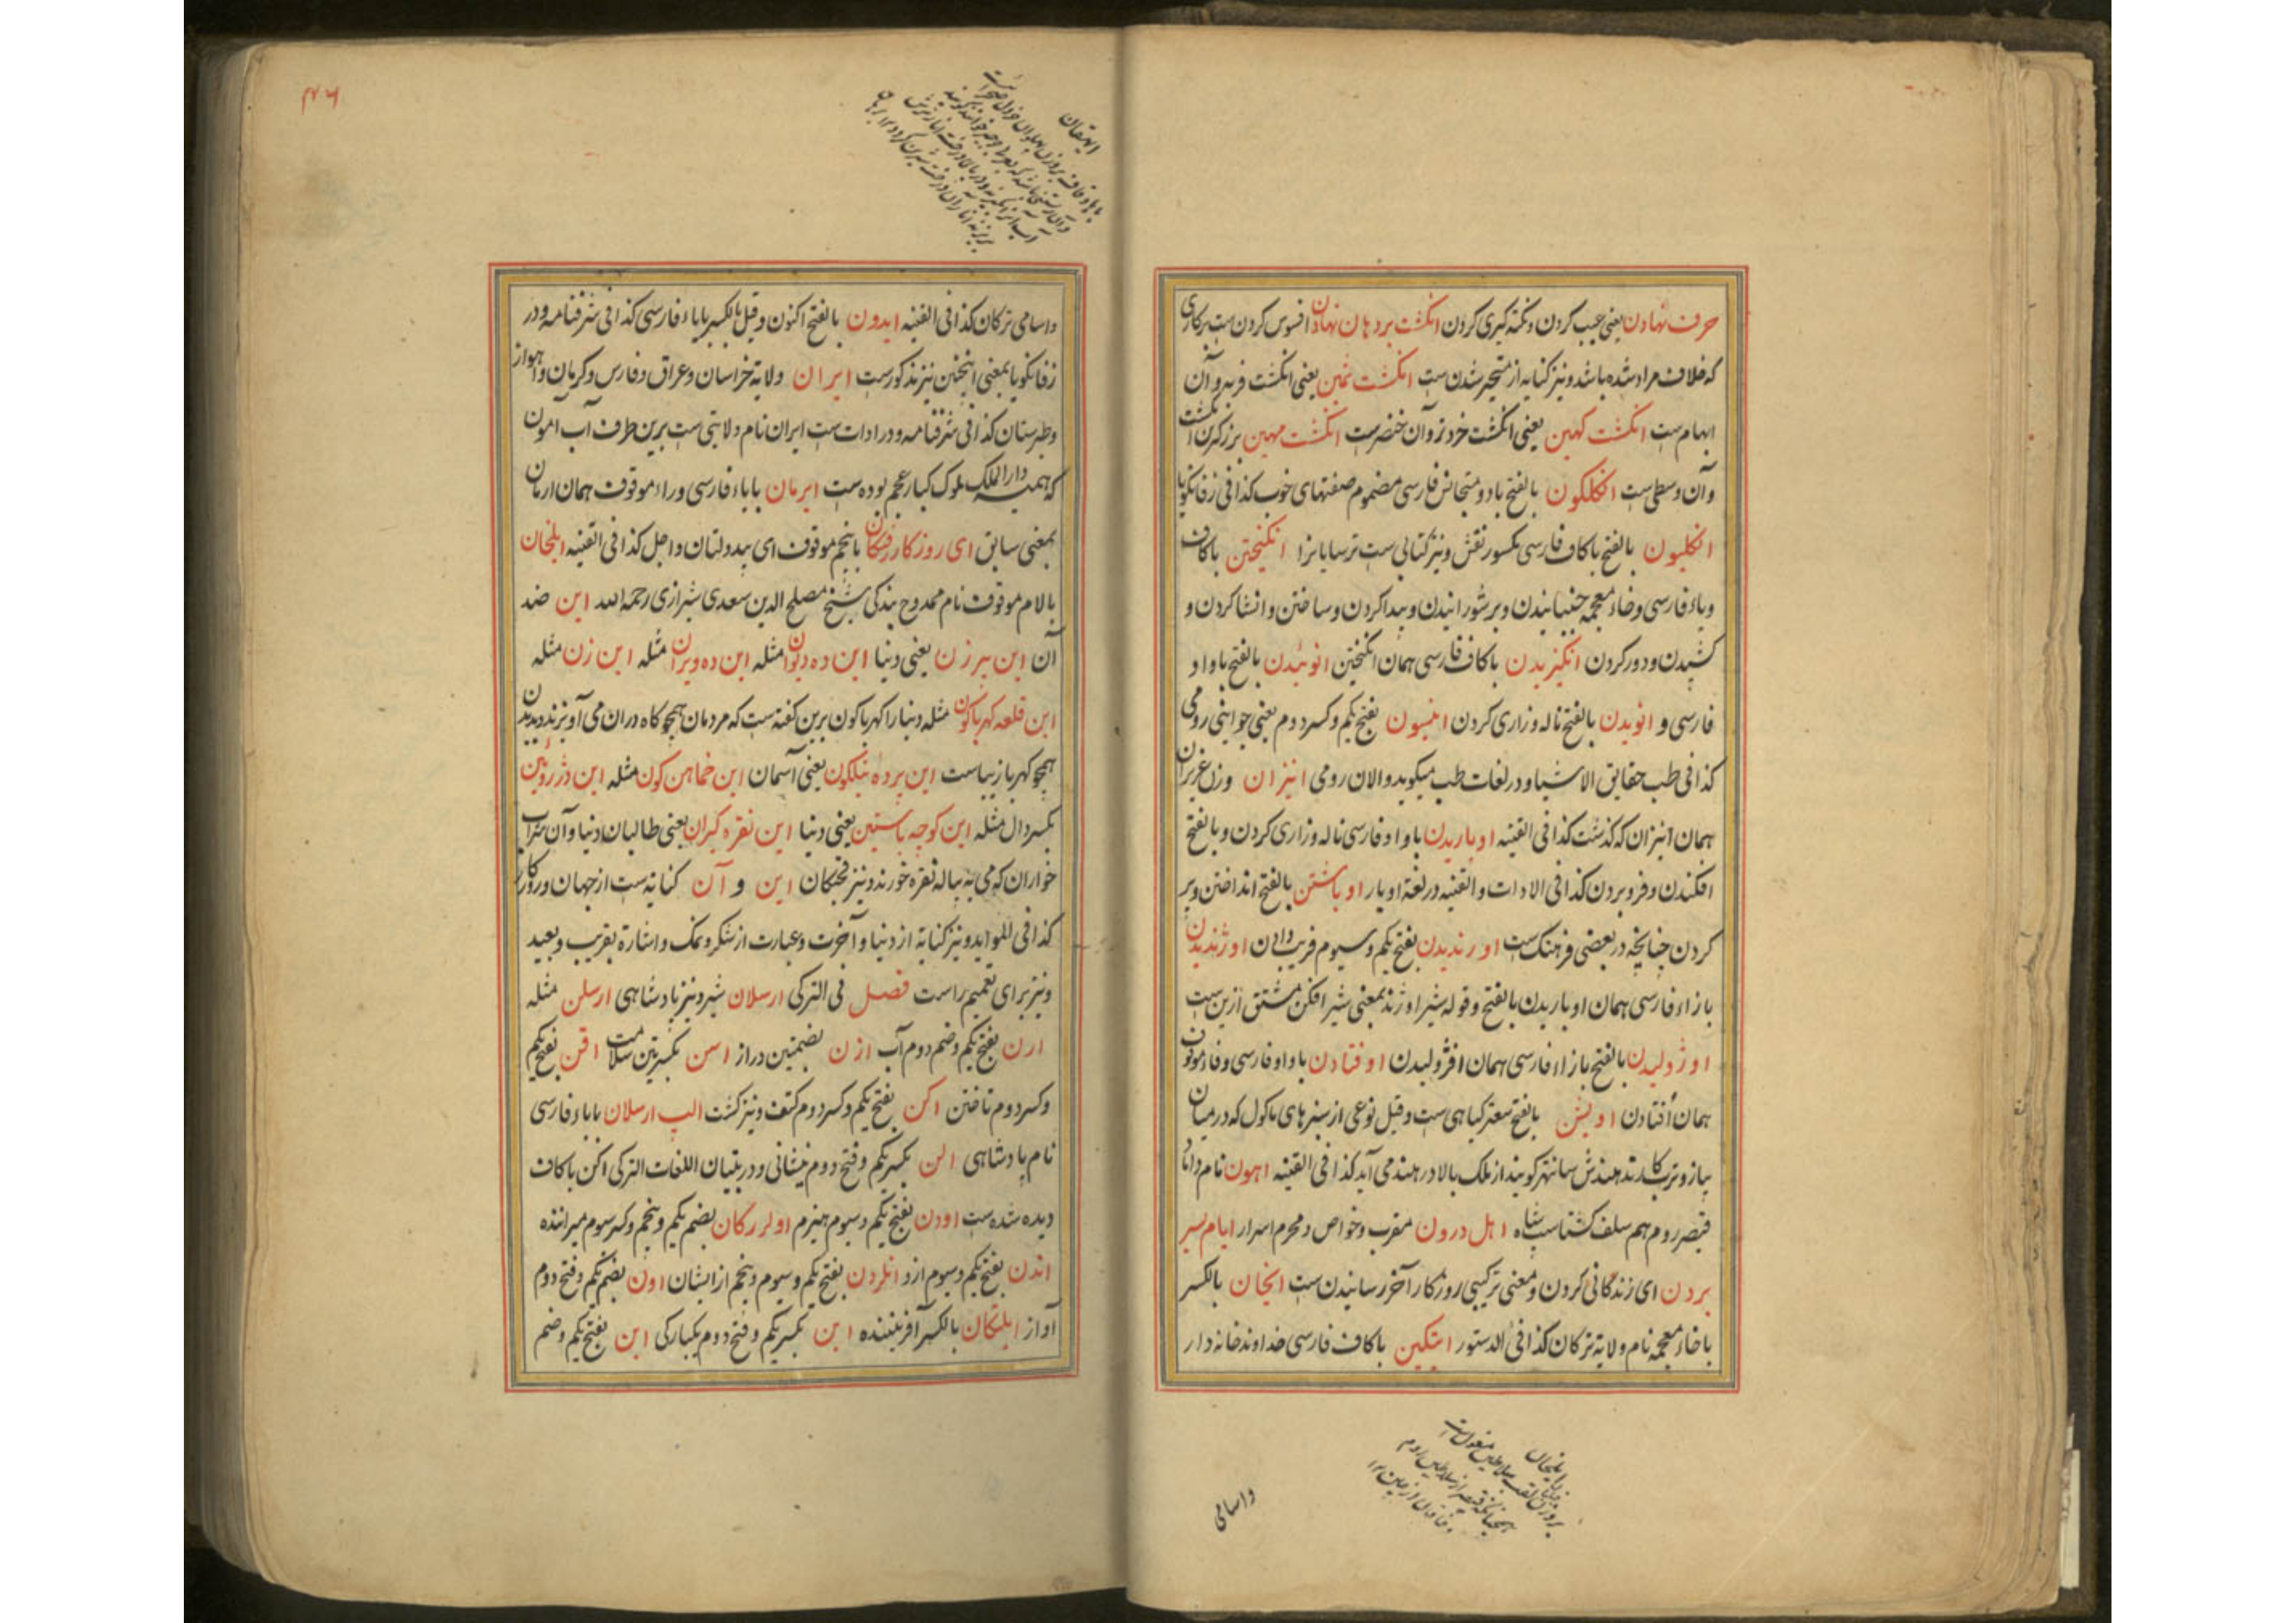 حرف نهادن یعنی عیب کردن و نکته گیری کردن انکشت بر دهان نهادن افسوس کردن ست برکاری
که خلاف مراد شده باشد و نیز کنایه از متحیر شدن ست انکشت نمین یعنی انکشت فربه و آن
ابهام ست انکشت کهین یعنی انکشت خردتر و آن خنصر ست انکشت مهین بزرکترین انکشت
و آن وسطی ست انکلکون بالفتح باد و متجانس فارسی مضموم صفتهای خوب کذا فی زفانکویا
انکلیون بالفتح با کاف فارسی مکسور نقش و نیز کتابی ست ترسایانرا انکیختن با کاف
و یاء فارسی و خاء معجمه جنبانیدن و بر شورانیدن و پیدا کردن و ساختن و انشا کردن و
کشیدن و دور کردن انکیزیدن با کاف فارسی همان انکیختن انوئیدن بالفتح با واو
فارسی و انویدن بالفتح ناله و زاری کردن انیسون بفتح یکم و کسر دوم یعنی جوانی رومی
کذا فی طب حقایق الاشیا و در لغات طب میکوید والان رومی انیزان وزن عزیزان
همان انیزان که کذشت کذا فی القنیه اوباریدن با واو فارسی ناله و زاری کردن و بالفتح
افکندن و فرو بردن کذا فی الادات و القنیه در لغة اوبار اوباشتن بالفتح انداختن و پر
کردن چنانچه در بعضی فرهنک ست اورندیدن بفتح یکم و سیوم فریب دادن اوژندیدن
با زاء فارسی همان اوباریدن بالفتح و قوله شیر اوژند بمعنی شیر افکن مشتق ازین ست
اوژولیدن بالفتح با زاء فارسی همان افژولیدن اوفتادن با واو فارسی و فاء موقوف
همان افتادن اویشن بالفتح سعتر کیاهی ست و قیل نوعی از سبزهای ماکول که در میان
پیاز و ترب کارند هندش سانتهر کویند از ملک بالا در هند می آید کذا فی القنیه اهون نام داناء
قیصر روم هم سلف کشتاسب شاه اهل درون مقرب و خواص و محرم اسرار ایام بسر
بردن ای زندکانی کردن و معنی ترکیبی روزکار آخر رسانیدن ست ایخان بالکسر
با خاء معجمه نام ولایة ترکان کذا فی الدستور ایتکین با کاف فارسی خداوند خانه دار
ایلخان
واسامی
واسامی ترکان کذا فی القنیه ایدون بالفتح اکنون و قیل بالکسر بایاء فارسی کذا فی شرفنامه و در
زفانکویا بمعنی اینچنین نیز مذکور ست ایران ولایة خراسان و عراق و فارس و کرمان و اهواز
و طبرستان کذا فی شرفنامه و در ادات ست ایران نام ولایتی ست برین طرف آب آمون
که همیشه دار الملک ملوک کبار عجم بوده ست ایرمان بایاء فارسی و راء موقوف همان ارمان
بمعنی سابق ای روزکار رفتکان با پنجم موقوف ای بیدولتان و اجل کذا فی القنیه ایلخان
با لام موقوف نام ممدوح بندکی شیخ مصلح الدین سعدی شیرازی رحمه الله این ضد
آن این پیر زن یعنی دنیا این ده دیوان مثله این ده ویران مثله این زن مثله
این قلعه کهرباکون مثله دنیا را کهرباکون برین کفته ست که مردمان همچو کاه دران می آویزند و دیدن
همچو کهربا زیباست این پرده نیلکون یعنی آسمان این خماهن کون مثله این دژ روئین
بکسر دال مثله این کوچه باستین یعنی دنیا این نقره کیران یعنی طالبان دنیا و آن شراب
خواران که می به پیاله نقره خورند و نیز پختکان این و آن کنایة ست از جهان و روزکار
کذا فی الفواید و نیز کنایة از دنیا و آخرت و عبارت از شکر و نمک و اشارة بقریب و بعید
و نیز برای تعمیم راست فصل فی الترکی ارسلان شیر و نیز پادشاهی ارسلن مثله
ارن بفتح یکم و ضم دوم آب ازن بضمتین دراز اسن بکسرتین سلامت اقن بفتح یکم
و کسر دوم تاختن اکن بفتح یکم و کسر دوم کتف و نیز کشت الپ ارسلان باباء فارسی
نام پادشاهی الن بکسر یکم و فتح دوم پیشانی و در تبیان اللغات الترکی اکن با کاف
دیده شده ست اودن بفتح یکم و سیوم هیزم اولرکان بضم یکم و پنجم و کسر سوم میراننده
اندن بفتح یکم و سیوم ازو انلردن بفتح یکم و سیوم و پنجم ازایشان اون بضم یکم و فتح دوم
آواز ایلتکان بالکسر آفریننده این بکسر یکم و فتح دوم یکبارکی این بفتح یکم و ضم